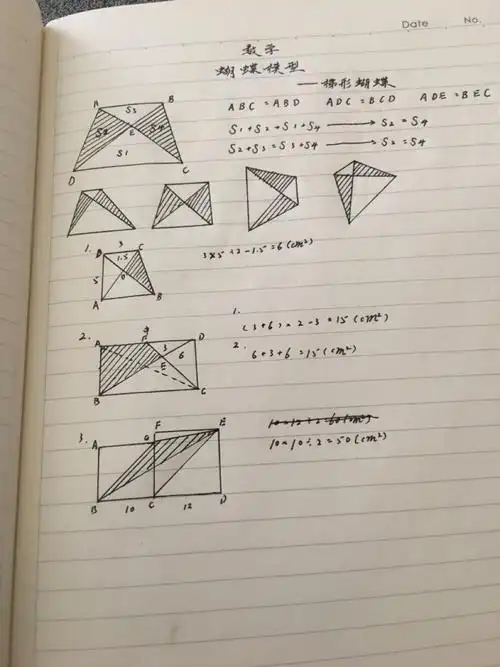 Date No.
数学
蝴蝶模型
——梯形蝴蝶
A B
S3
S2 E S4
S1
D C
ABC=ABD ADC=BCD ADE=BEC
S1+S2=S1+S4 → S2=S4
S2+S3=S3+S4 → S2=S4
1. 3
D C
1.5
5 O
A B
3×5÷2-1.5=6(cm²)
2. A F D
3 6
E
B C
1.
(3+6)×2-3=15(cm²)
2.
6+3+6=15(cm²)
3. A G F E
B 10 C 12 D
10×12÷2=60(cm²)
10×10÷2=50(cm²)